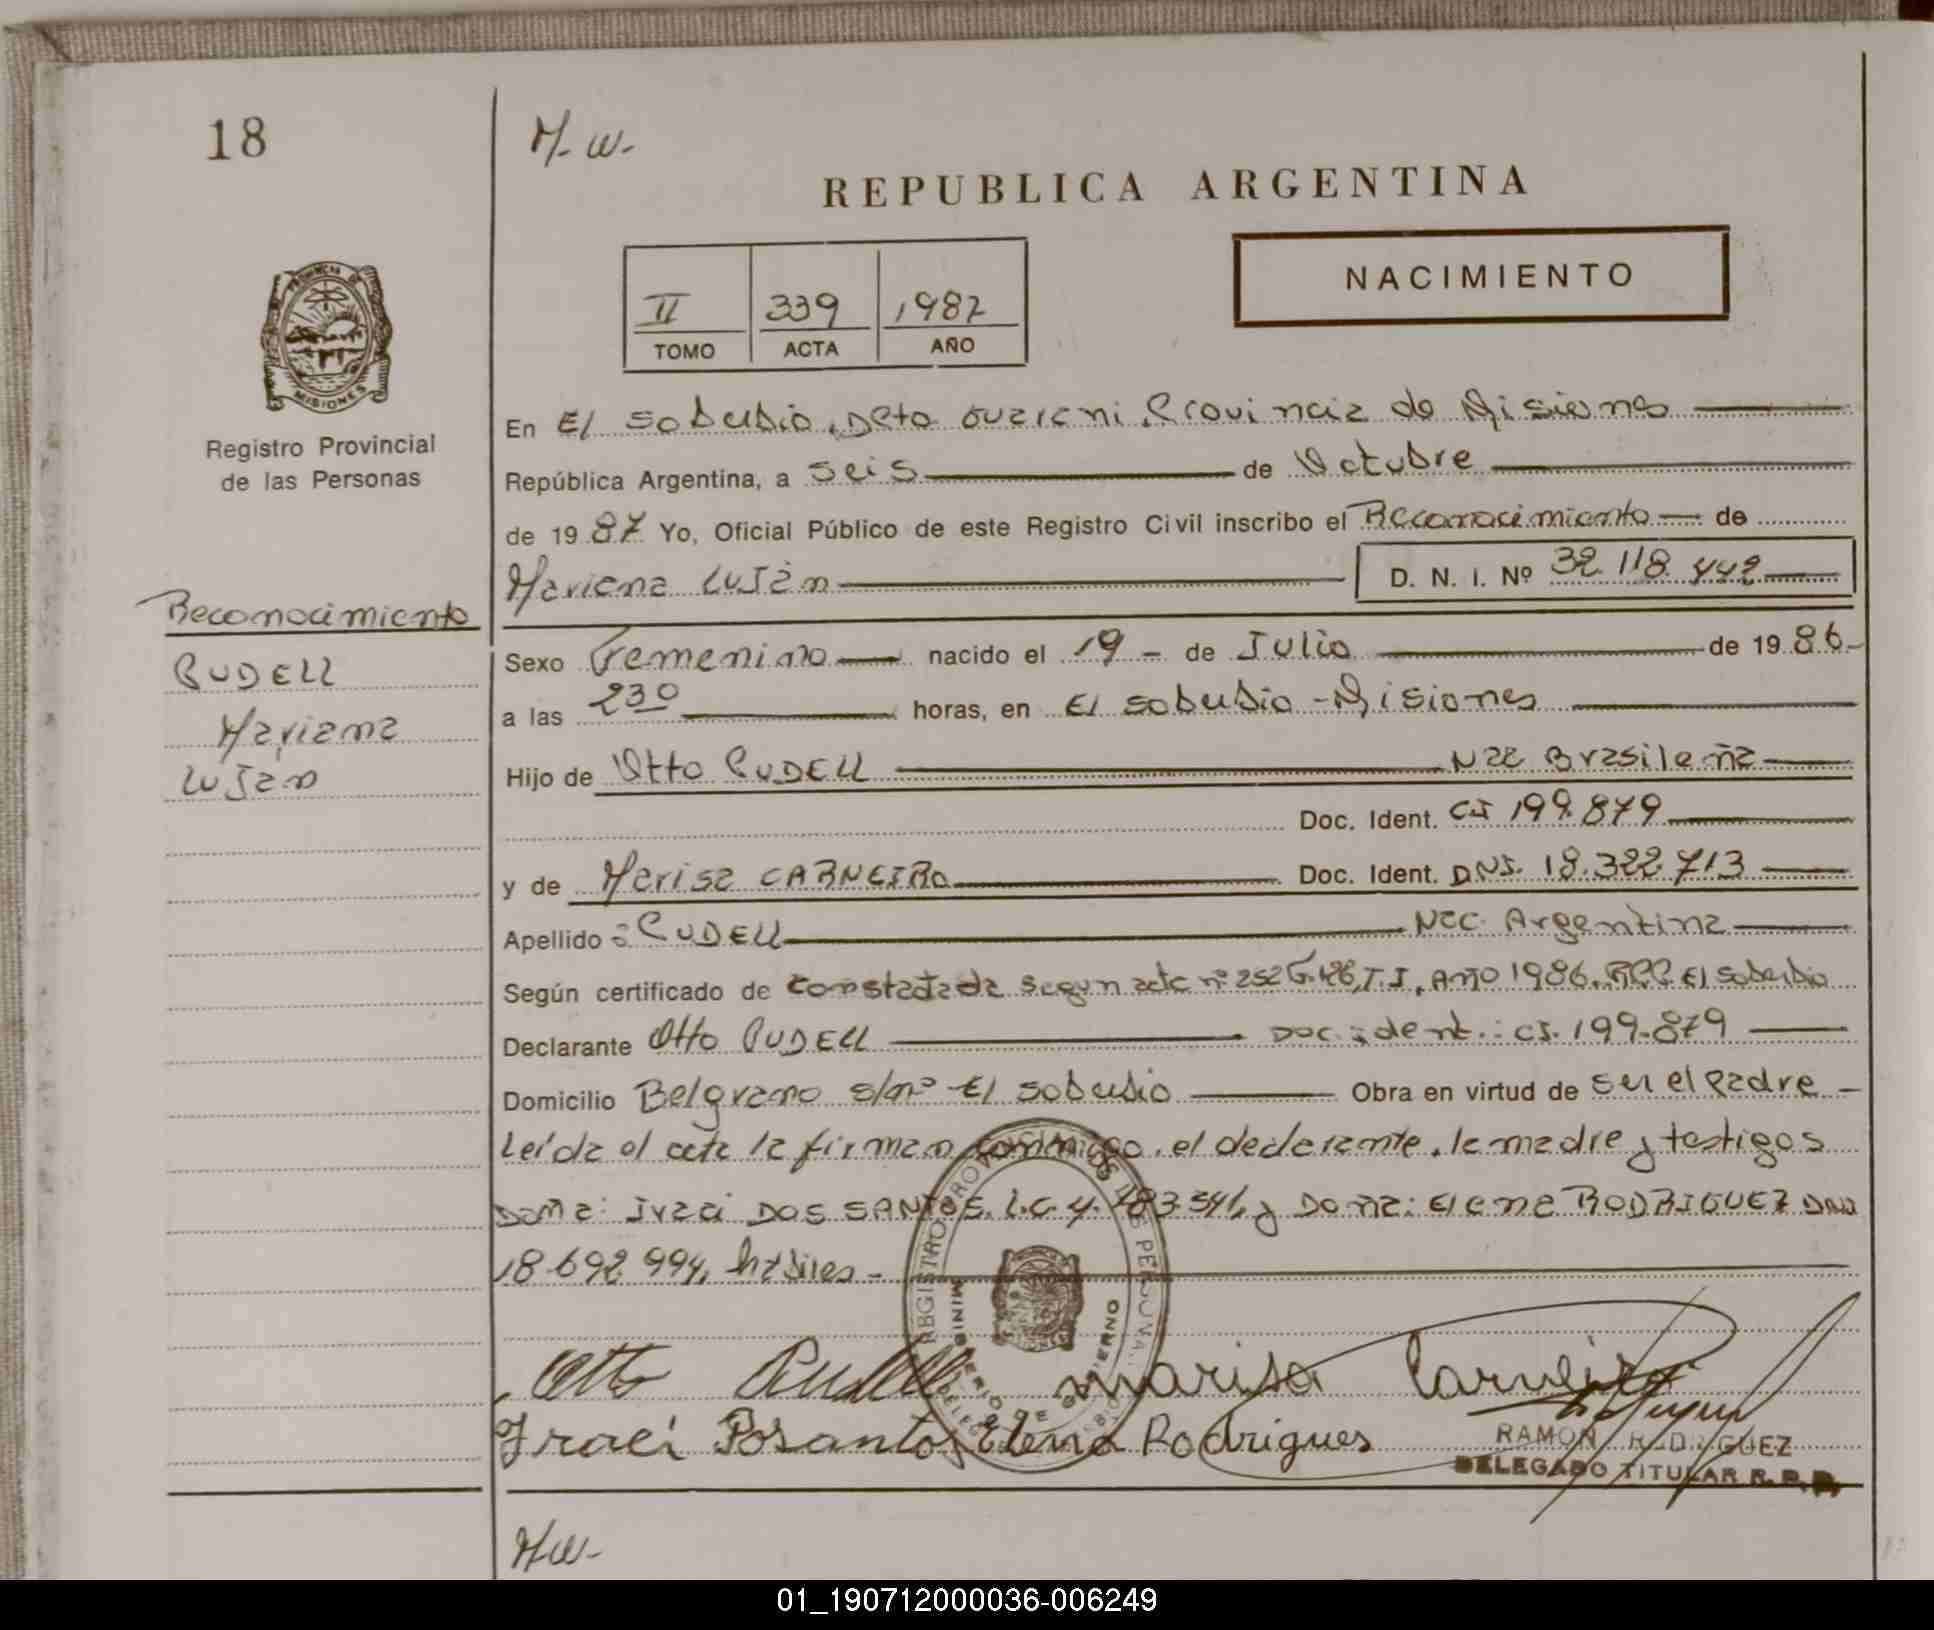 18
M-W-
REPUBLICA ARGENTINA
II 339 1987
TOMO ACTA AÑO
NACIMIENTO
PROVINCIA DE
MISIONES
Registro Provincial
de las Personas
Reconocimiento
RUDELL
Mariana
LUJan
En El Soberbio, Dpto Guarani, Provincia de Misiones
República Argentina, a Seis de Octubre
de 1987 Yo, Oficial Público de este Registro Civil inscribo el Reconocimiento de
Mariana LUJàn D. N. I. Nº 32.118.442
Sexo Femenino nacido el 19 - de Julio de 1986-
a las 23º horas, en El Soberbio - Misiones
Hijo de Otto RUDELL Nac Brasileña
Doc. Ident. CI 199.879
y de Marisa CARNEIRO Doc. Ident. DNI. 18.322.713
Apellido : RUDELL Nac. Argentina
Según certificado de Constatada segun acta nº 252 F.126, T.I, Año 1986. R.P.P. El Soberbio
Declarante Otto RUDELL Doc. ident.: CI. 199.879
Domicilio Belgrano s/nº El Soberbio Obra en virtud de ser el Padre -
Leída el acta la firman conmigo, el declarante, la madre y testigos
Doña: Iraci DOS SANTOS, L.C. 4.783.541, y Doña: Elena RODRIGUEZ DNI
18.692.994, hábiles -
REGISTRO PROVINCIAL DE LAS PERSONAS
MINISTERIO DE GOBIERNO
Otto Rudell Marisa Carneiro
Iraci Dosantos Elena Rodrigues
RAMON RODRIGUEZ
DELEGADO TITULAR R. P. P.
MW-
01_190712000036-006249